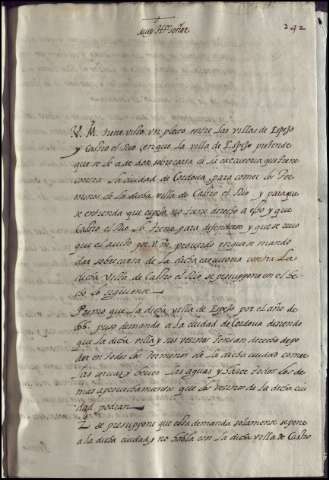 muy Ill.e señor
242
V. M. tiene visto un pleito entre las villas de Espejo
y Castro el Rio en que la villa de Espejo pretende
que se le a de dar sobrecarta de la executoria que tiene
contra la ciudad de Cordova para comer los ter
minos de la dicha villa de Castro el Rio y para que
se entienda que espejo no tiene derecho a esto y que
Castro el Rio le tiene para defenderse y que se
que el aucto por V. m. proveydo en que se mando
dar sobrecarta de la dicha executoria contra la
dicha villa de Castro el Rio se presupone en el he
cho lo siguiente
Primo que la dicha villa de Espejo por el año de
puso demanda a la ciudad de Cordova diziendo
que la dicha villa y sus vezinos tenian derecho de po
der en todos los terminos de la dicha ciudad comer
las yervas bever las aguas y hazer todos los de
mas aprovechamientos que los vezinos de la dicha ciu
dad podian
se presupone que esta demanda solamente se pone
a la dicha ciudad y no habla con la dicha villa de Castro